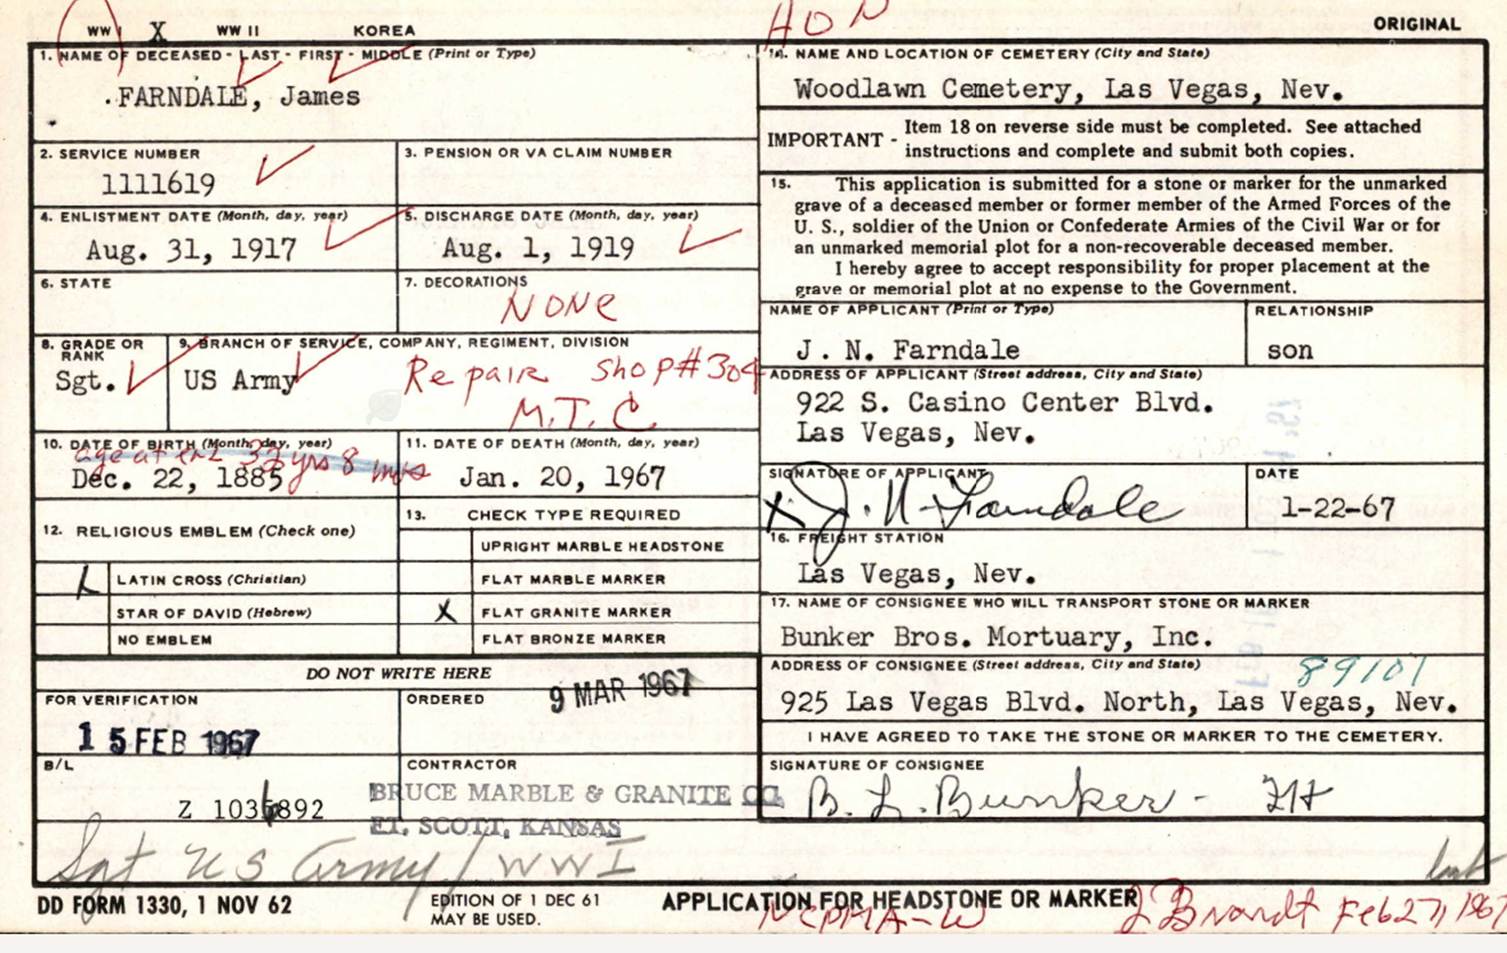 HON
WW I X WW II KOREA
ORIGINAL
1. NAME OF DECEASED - LAST - FIRST - MIDDLE (Print or Type)
FARNDALE, James
2. SERVICE NUMBER
1111619
3. PENSION OR VA CLAIM NUMBER
4. ENLISTMENT DATE (Month, day, year)
Aug. 31, 1917
5. DISCHARGE DATE (Month, day, year)
Aug. 1, 1919
6. STATE
7. DECORATIONS
NONE
8. GRADE OR RANK
Sgt.
9. BRANCH OF SERVICE, COMPANY, REGIMENT, DIVISION
US Army
Repair Shop #304
M.T.C
10. DATE OF BIRTH (Month, day, year)
age at enl 33 yrs 8 mos
Dec. 22, 1885
11. DATE OF DEATH (Month, day, year)
Jan. 20, 1967
12. RELIGIOUS EMBLEM (Check one)
X LATIN CROSS (Christian)
STAR OF DAVID (Hebrew)
NO EMBLEM
13. CHECK TYPE REQUIRED
UPRIGHT MARBLE HEADSTONE
FLAT MARBLE MARKER
X FLAT GRANITE MARKER
FLAT BRONZE MARKER
DO NOT WRITE HERE
FOR VERIFICATION
15 FEB 1967
ORDERED
9 MAR 1967
B/L
Z 1036892
CONTRACTOR
BRUCE MARBLE & GRANITE CO.
FT. SCOTT, KANSAS
Sgt US Army / WWI
14. NAME AND LOCATION OF CEMETERY (City and State)
Woodlawn Cemetery, Las Vegas, Nev.
IMPORTANT - Item 18 on reverse side must be completed. See attached
instructions and complete and submit both copies.
15. This application is submitted for a stone or marker for the unmarked
grave of a deceased member or former member of the Armed Forces of the
U. S., soldier of the Union or Confederate Armies of the Civil War or for
an unmarked memorial plot for a non-recoverable deceased member.
I hereby agree to accept responsibility for proper placement at the
grave or memorial plot at no expense to the Government.
NAME OF APPLICANT (Print or Type)
J. N. Farndale
RELATIONSHIP
son
ADDRESS OF APPLICANT (Street address, City and State)
922 S. Casino Center Blvd.
Las Vegas, Nev.
SIGNATURE OF APPLICANT
X J. N. Farndale
DATE
1-22-67
16. FREIGHT STATION
Las Vegas, Nev.
17. NAME OF CONSIGNEE WHO WILL TRANSPORT STONE OR MARKER
Bunker Bros. Mortuary, Inc.
ADDRESS OF CONSIGNEE (Street address, City and State)
89101
925 Las Vegas Blvd. North, Las Vegas, Nev.
I HAVE AGREED TO TAKE THE STONE OR MARKER TO THE CEMETERY.
SIGNATURE OF CONSIGNEE
B. L. Bunker -
DD FORM 1330, 1 NOV 62
EDITION OF 1 DEC 61
MAY BE USED.
APPLICATION FOR HEADSTONE OR MARKER
NCPMA-W
J Brandt Feb 27, 1967